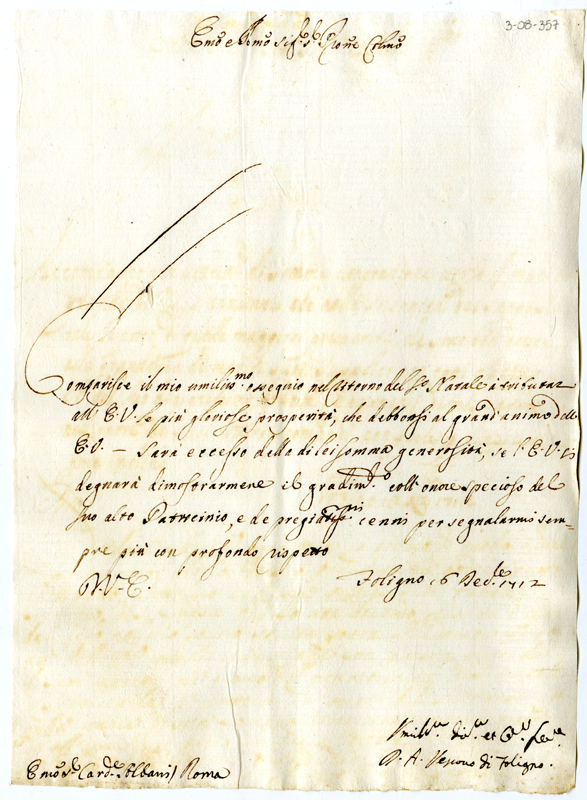 3-08-357
Emo e Rmo Sigr. Sr. Prone Colmo
Comparisce il mio umilissmo. ossequio nel ritorno del So. Natale à tributar
all' E.V. le più gloriose prosperità, che debbonsi al grand'animo dell'
E.V. — Sarà eccesso della di lei somma generosità, se l'E.V. si
degnarà dimostrarmene il gradimto. coll'onore specioso del
suo alto Patrocinio, e de pregiatissmi cenni per segnalarmi sem-
pre più con profondo rispetto
D. V. E.
Foligno 16 Decbre. 1712
Umilmo. divmo. et
D. A. Vescovo di Foligno.
Emo Sr. Cardle. Albani / Roma